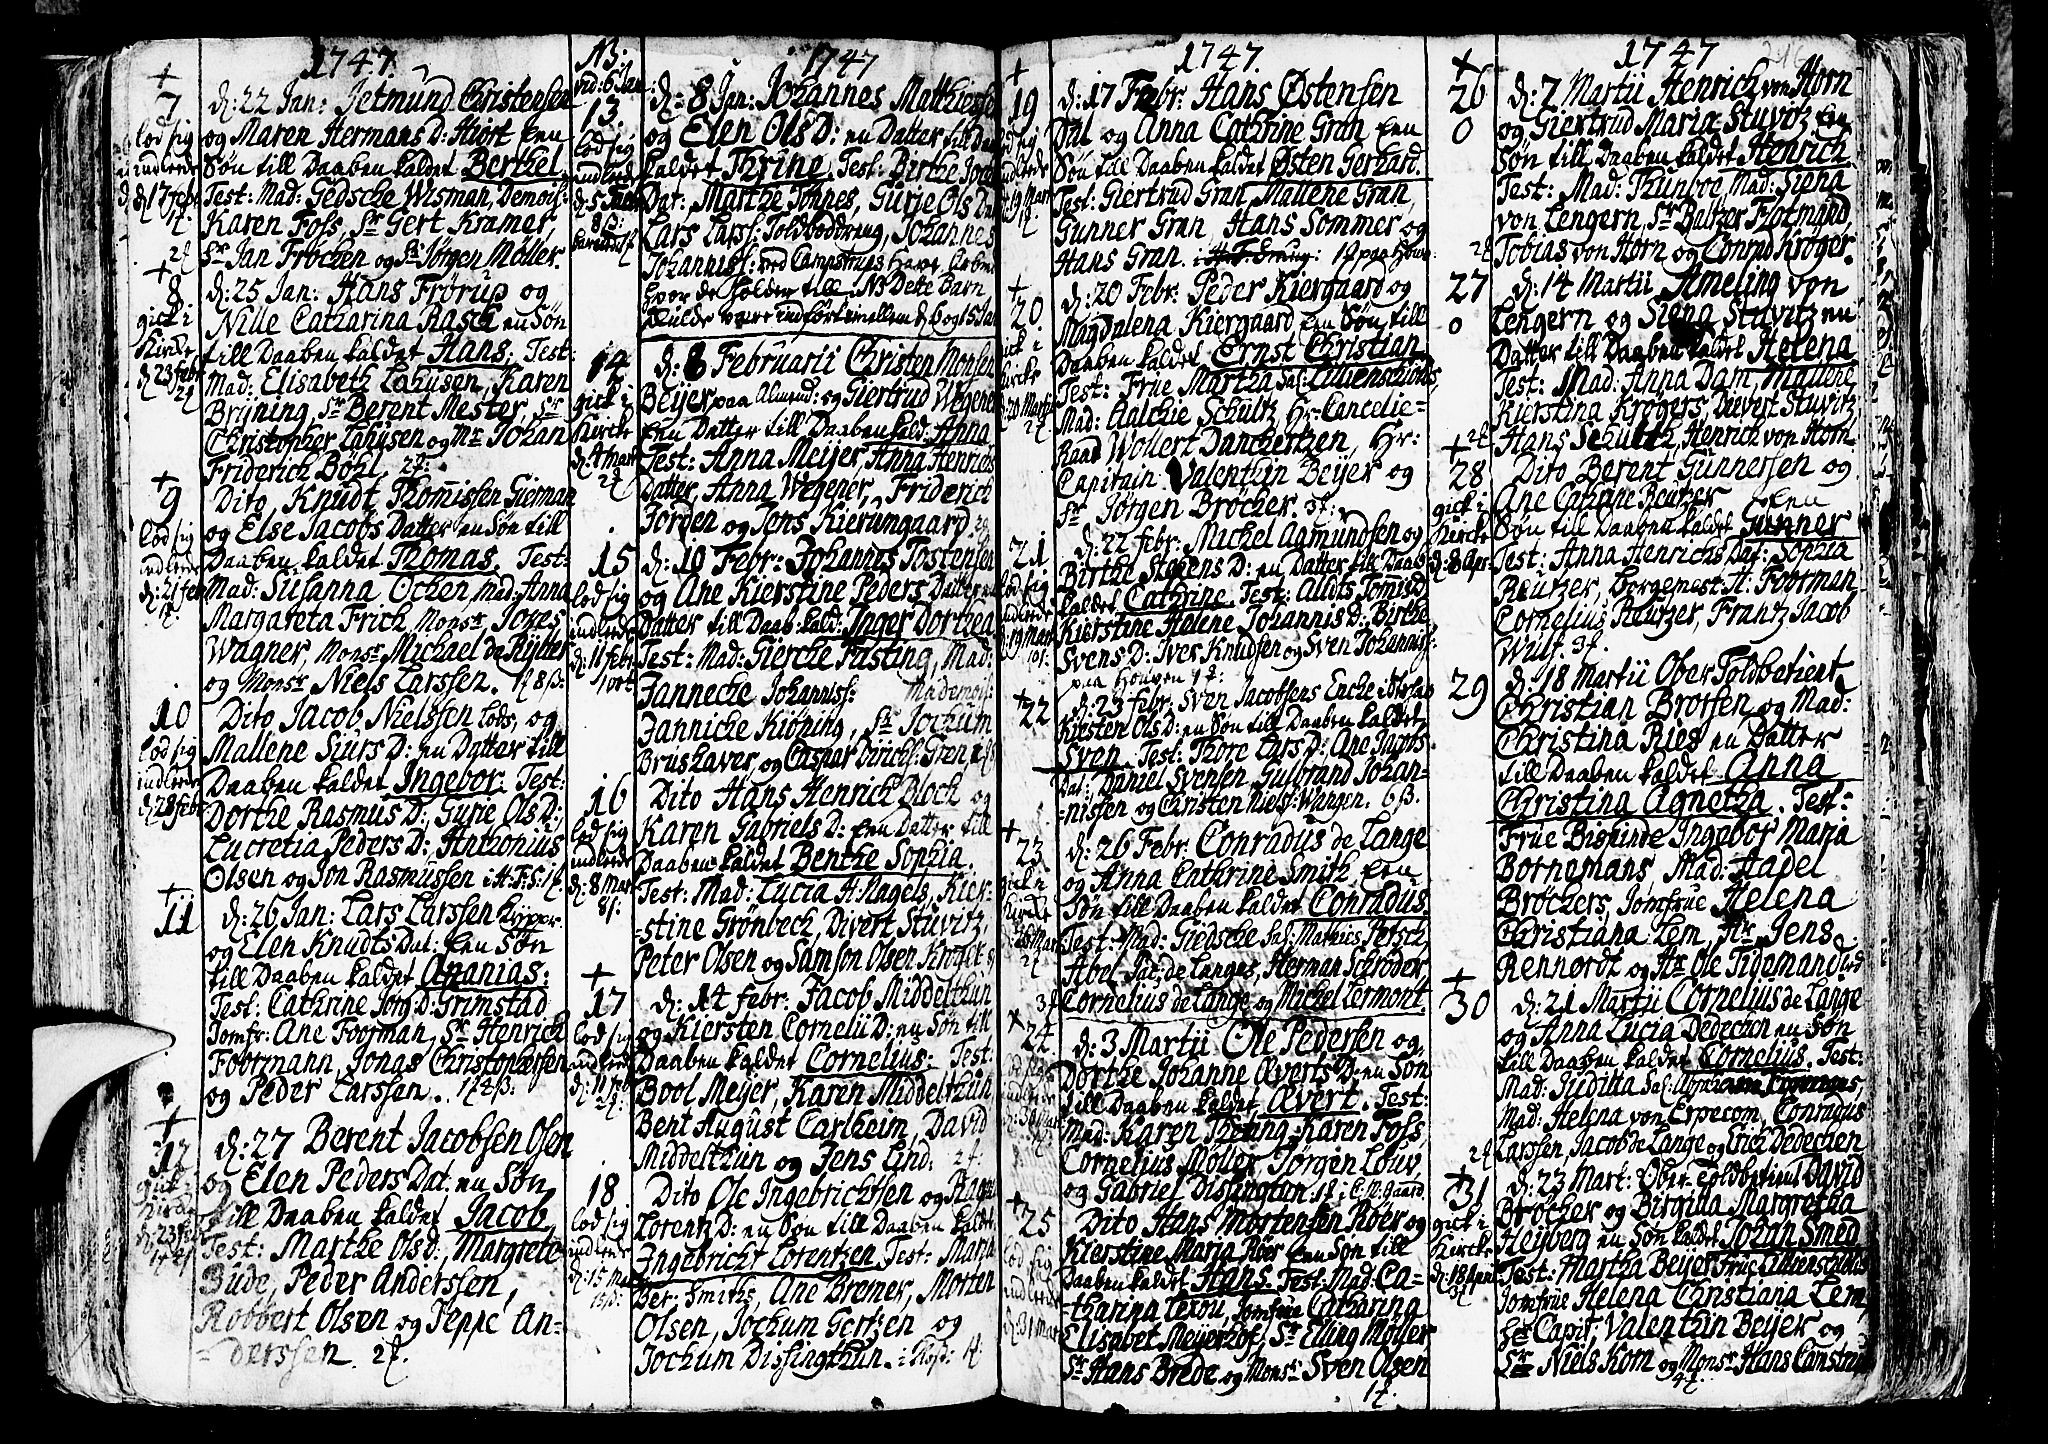 1747.
+
7
lod sig
indlede
d: 17 febr
1 f.
d: 22 Jan: Jetmund Christensen
og Maren Hermans D: Hiort Een
Søn till Daaben kaldet Berthel.
Test: Mad: Gedsche Wisman, Demois:
Karen Foss, Sr Gert Kramer,
Sr Jan Frøchen og Sr Jørgen Møller.
+
8
gick i
Kircke
d: 23 febr
d: 25 Jan: Hans Frørup og
Nille Catharina Rasch en Søn
till Daaben kaldet Hans. Test:
Mad: Elisabeth Lahusen, Karen
Bryning, Sr Berent Mester, Sr
Christopher Lahusen og Mr Johan
Friderich Bøhl. 2f.
+
9
lod sig
indlede
d: 21 febr
1f.
Dito Knudt Thomissen Gierman
og Else Jacobs Datter en Søn till
Daaben kaldet Thomas. Test:
Mad: Susanna Ocken, Mad: Anna
Margareta Frich, Monsr Jonas
Wagner, Monsr Michael de Rytter
og Monsr Niels Larssen. 1f 8ß.
10
lod sig
indlede
d: 28 febr
Dito Jacob Nielssen Lods, og
Mallene Siurs D: en Datter till
Daaben kaldet Ingebor. Test:
Dorthe Rasmus D: Gurie Ols D:
Lucretia Peders D: Anthonius
Olsen og Jon Rasmussen i H.F.S. 1f.
+
11
d: 26 Jan: Lars Larssen Kypper
og Elen Knudts Dat: Een Søn
till Daaben kaldet Ananias:
Test: Cathrine Jorg D: Grimstad
Jomfr: Ane Foorman, Sr Henrich
Foormann, Jonas Christophersen
og Peder Larssen. 1f 2ß.
+
12
gick i
Kircke
d: 23 febr
d: 27 Berent Jacobsen Olsen
og Elen Peders Dat: en Søn
till Daaben kaldet Jacob
Test: Marthe Ols d: Margrete
Bude, Peder Anderssen,
Robbert Olsen og Peppe An=
=derssen. 2f.
1747
13.
vid: 6 Jan
13.
lod sig
indlede
d: 5 Febr
8ß:
d: 8 Jan: Johannes Matthiessen
og Elen Ols D: en Datter till Daab
kaldet Thrine. Test: Birthe Jons
Dat, Marthe Tønnes, Gurie Ols Dat
Lars Larss: Toldboddreng, Johannes
Johanniss: ved Campstrups Have. Arbeid
hvor de holder till. NB Dette Barn
skulde være indført mellem d: 6 og 15 Jan
14
gick i
Kircke
d: 4 Mart
2f
d: 8 Februarii Christen Monsen
Beyer paa Almend: og Giertrud Wegener
Een Datter till Daaben kald: Anna
Test: Anna Meijer, Anna Henrichs
Datter, Anna Wegener, Friderich
Jorden og Jens Kierumgaard. 2f
15
lod sig
indlede
d: 11 febr
1 ort
d: 10 Febr: Johannes Tostensen
og Ane Kierstine Peders Datter en
Datter till Daab: kald: Inger Dorthea
Test: Mad: Giercke Fasting, Mad:
Jannecke Johanniss: Mademois:
Jannicke Kiøning, Sr Jochum
Bruskaver, og Casper Dirichs: Gren 1f
16
lod sig
indlede
d: 8 Mart
8ß:
Dito Hans Henrich Bloch og
Karen Gabriels D: Een Datter till
Daaben kaldet Benthe Sophia.
Test: Mad: Lucia H: Nagels, Kier=
=stine Grønbeck, Divert Stuvitz,
Peter Olsen og Samson Olsen Kroger
+
17
lod sig
indlede
d: 14 febr: Jacob Middelthun
og Kiersten Cornelii D: en Søn till
Daaben kaldet Cornelius: Test:
Bool Meyer, Karen Middelthun
Bent August Carlheim, David
Middelthun og Jens Lind: 2f.
18
lod sig
indlede
d: 15 Mar
Dito Ole Ingebrichtsen og
Lorentz D: en Søn till Daaben kaldet
Ingebricht Lorentzen. Test: Maria
Ber: Smiths, Ane Bremer, Morten
Olsen, Jochum Gertsen og
Jochum Dissingthun.
1747.
+
19
lod sig
indlede
19 Mart
1f.
d: 17 Febr: Hans Østensen
Dal og Anna Cathrine Gran Een
Søn till Daaben kaldet Østen Gerhard.
Test: Giertrud Gran, Mallene Gran,
Gunner Gran, Hans Sommer og
Hans Gran.
+
20.
gick i
Kircke
20 Martii
2f
d: 20 Febr: Peder Kiergaard og
Magdalena Kiergaard Een Søn till
Daaben kaldet Ernst Christian
Test: Frue Martha Sal: Lilienschiolds,
Mad: Aalchie Schultz, Hr: Cancelie=
Raad Wollert Danckertzen, Hr:
Capitain: Valentin Beyer og
Sr Jørgen Brøcker. 3f.
21.
lod sig
indlede
19 Mart
d: 22 febr: Michel Aamundsen og
Birthe Steffens D: en Datter till Daab:
kaldet Cathrine. Test: Aldts Tomis D
Kierstine Helene Johannis D: Birthe
Svens D: Iver Knudsen og Sven Johanniss:
paa Houven 1f.
+
22
d: 23 febr: Sven Jacobsens Encke
Kirsten Ols D: en Søn till Daaben kaldet
Sven. Test: Thore Lars D: Ane Jacobs
Dat: Daniel Svensen, Gulbrand Johan=
=nissen og Christen Niels: Wangen. 6ß.
+
23
gick i
Kircke
2f
d: 26 Febr: Conradus de Lange
og Anna Cathrine Smith Een
Søn till Daaben kaldet Conradus
Test: Mad: Giedsche Sal: Mathies Petsch
Abel Jac: de Langes, Herman Schrøder,
Cornelius de Lange og Michel Lermont. 3f
24
d: 3 Martii Ole Pedersen og
Dorthe Johanne Æverts D: en Søn
till Daaben kaldet Ævert. Test:
Mad: Karen Thoring, Karen Foss,
Cornelius Møller, Jørgen Louv
og Gabriel Dissingtun.
+
25
lod sig
indlede
d: 31 Mart
Dito Hans Mortensen Røer og
Kierstine Maria Røer Een Søn till
Daaben kaldet Hans. Test: Mad: Ca=
=tharina Lexou, Jomfrue Catharina
Elisabet Meyerhof, Sr Elling Møller
Sr Hans Brede og Monsr Sven Olsen
1f.
1747
+
26
0
2f
d: 7 Martii Henrich von Horn
og Giertrud Maria Stuvitz Een
Søn till Daaben kaldet Henrich
Test: Mad: Thunboe, Mad: Siena
von Lengern, Sr Baltzer Flotmand,
Tobias von Horn og Conrad Krøger.
27
0
2f
d: 14 Martii Ameling von
Lengern og Siena Stuvitz en
Datter till Daaben kaldet Helena
Test: Mad: Anna Dam, Mallene
Kierstina Krøgers, Divert Stuvitz
Hans Schultz, Henrich von Horn
+
28
gick i
Kircke
d: 8 Apr:
Dito Berent Gunnersen og
Ane Catrine Reutzer Een
Søn till Daaben kaldet Gunner
Test: Anna Henrichs Dat: Sophia
Reutzer, Borgemest: H: Foorman
Cornelius Reutzer, Frantz Jacob
Wulf. 3f.
29
d: 18 Martii Ober Toldbetient
Christian Brossen og Mad:
Christina Ries en Datter
till Daaben kaldet Anna
Christina Agnetha. Test:
Frue Bispinde Ingebor Maria
Bornemans Mad: Hadel
Brøckers, Jomfrue Helena
Christiana Lem, Hr Jens
Rennordt og Hr Ole Tidemand
+
30
2f
d: 21 Martii Cornelius de Lange
og Anna Lucia Dedechen en Søn
till Daaben kaldet Cornelius. Test:
Mad: Juditta Sal:
Mad: Helena von Erpecom, Conradus
Larssen, Jacob de Lange og Erich Dedechen
+
31
gick i
Kircke
d: 18 April
d: 23 Mart: Ober Toldbetient David
Brøcher og Birgitta Margretha
Heyberg en Søn kaldet Johan Smed
Test: Martha Beyer Frue Lilienschiolds
Jomfrue Helena Christiana Lem,
Hr Capit: Valentin Beijer og
Sr Niels Korn og Monsr Hans Camstrup
4f.